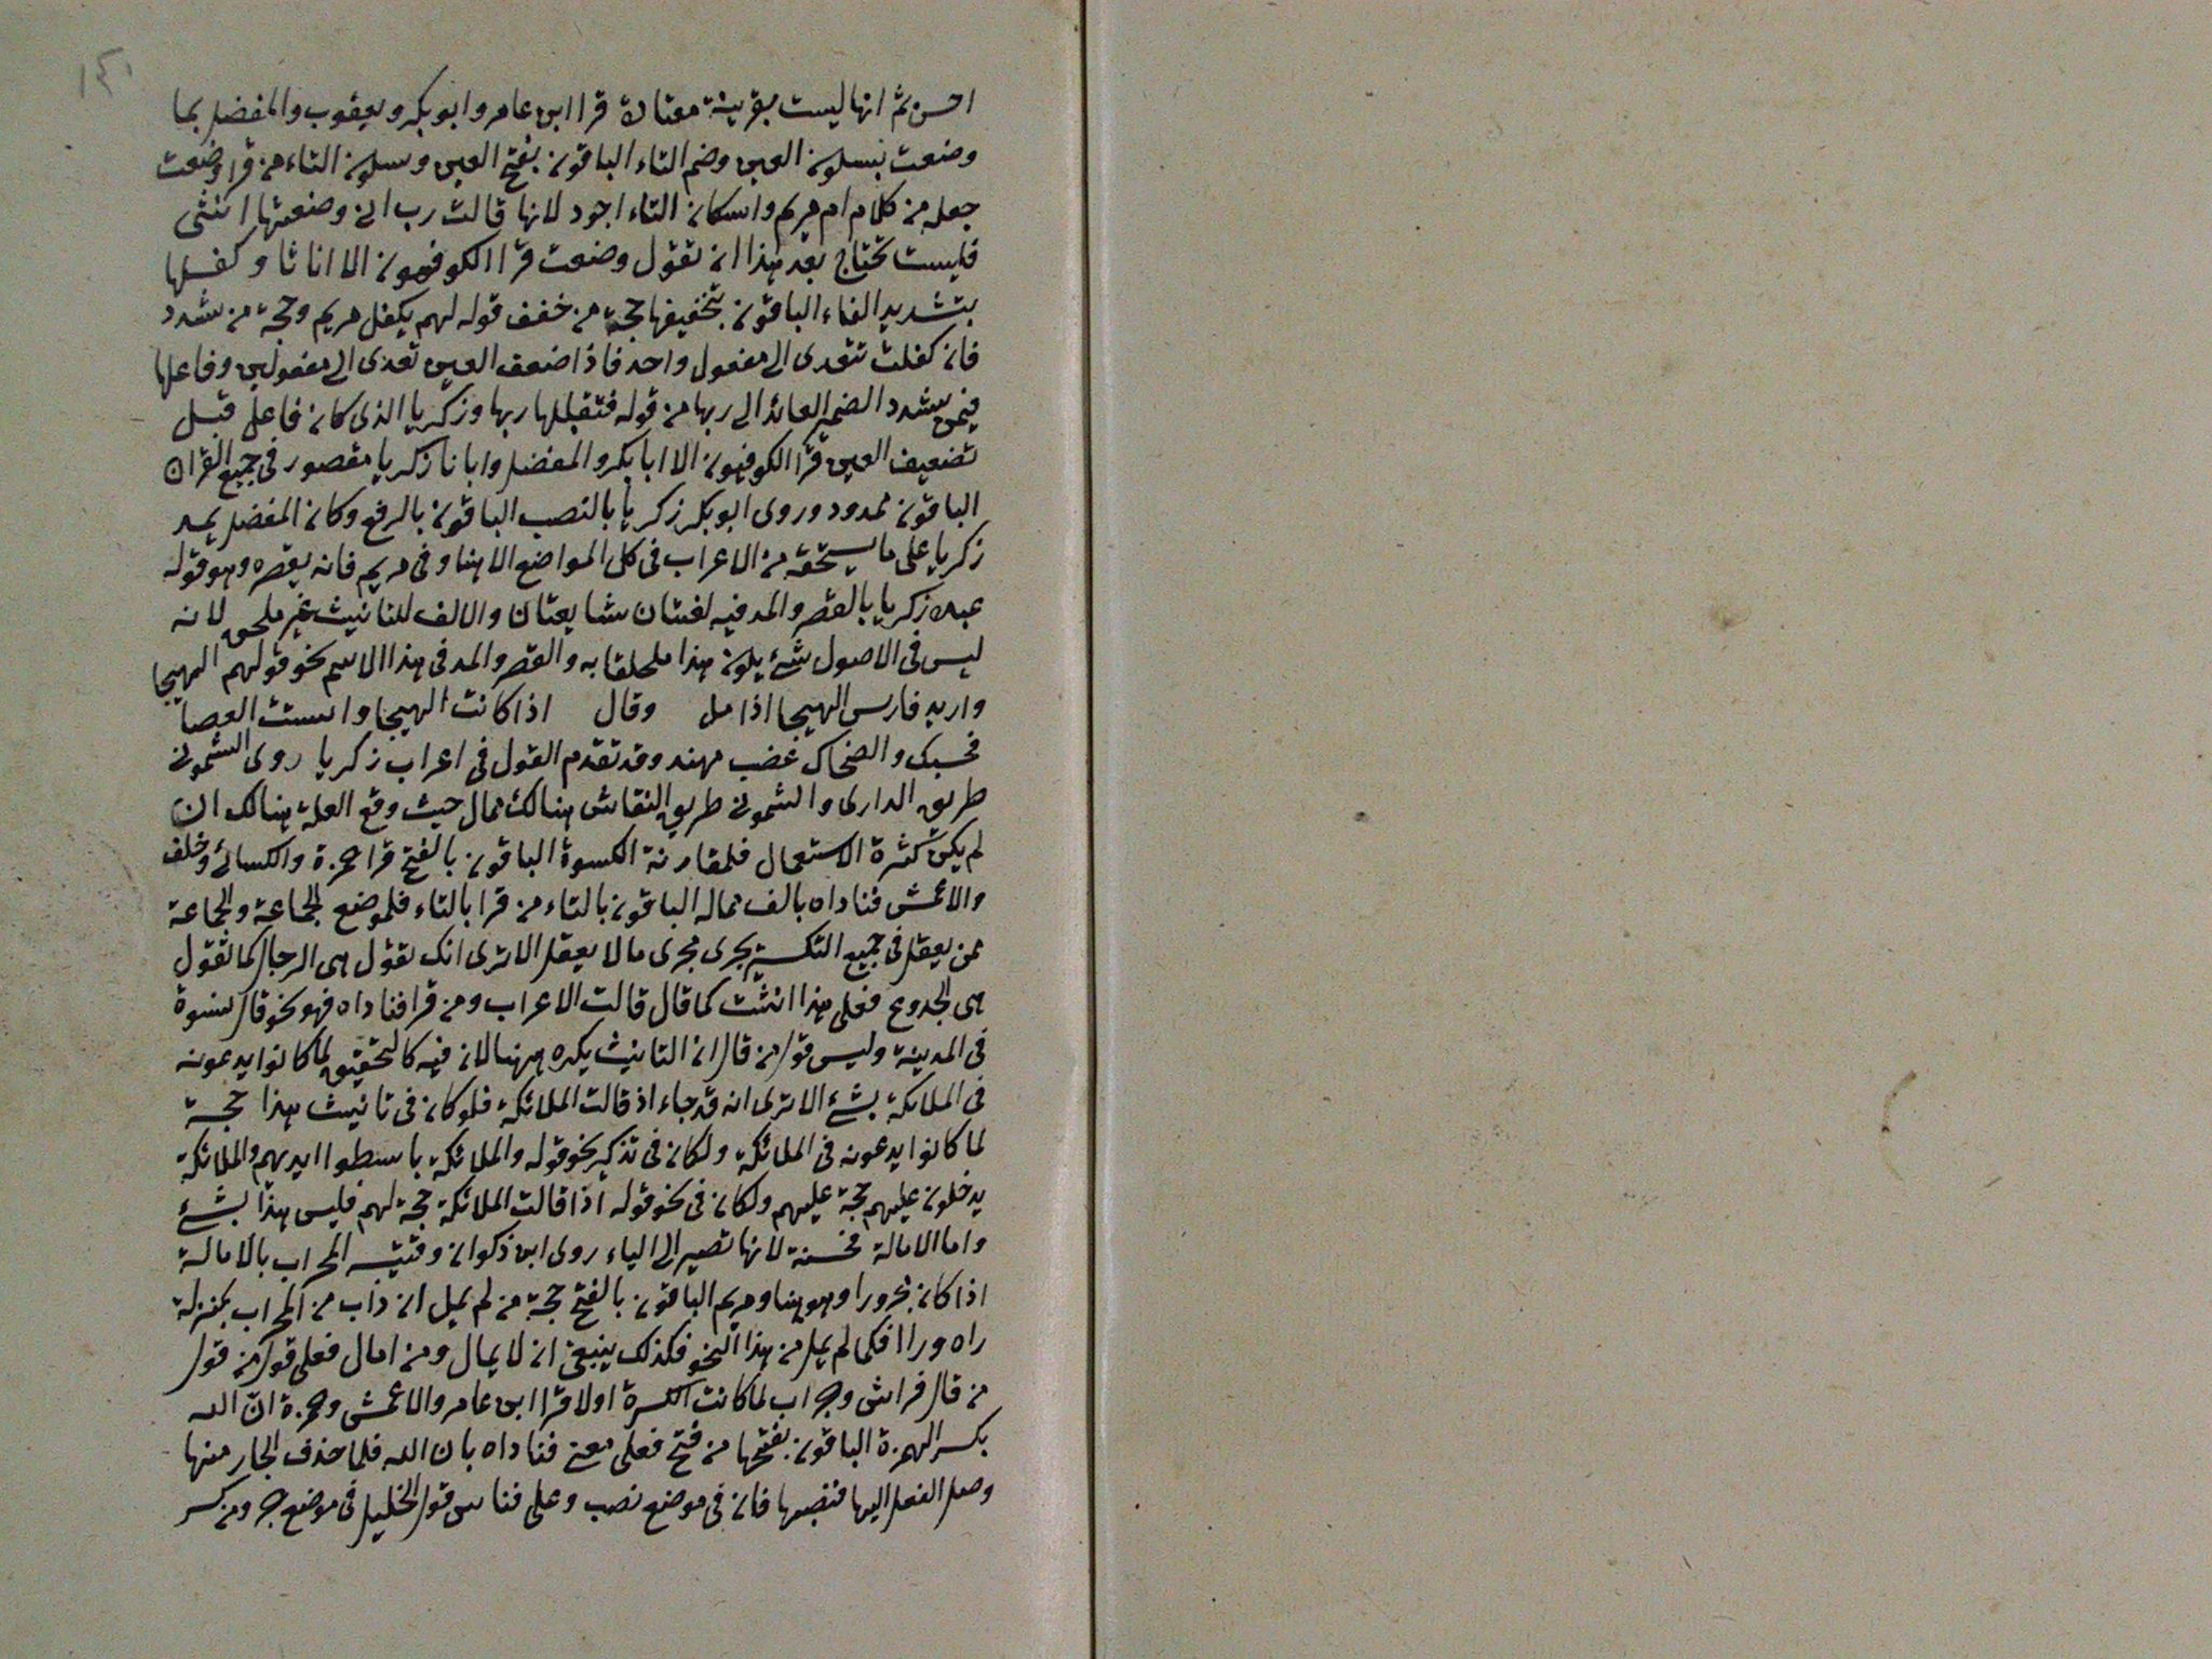 ١٤١
احسن ثم انها ليست بقرينة معتادة قرا ابن عامر وابو بكر ويعقوب والمفضل بما
وضعت بسكون العين وضم التاء الباقون بفتح العين وسكون التاء من قرا وضعت
جعله من كلام ام مريم واسكان التاء اجود لانها قالت رب انى وضعتها انثى
فليست تحتاج بعد هذا ان تقول وضعت قرا الكوفيون الا اناثا وكفلها
بتشديد الفاء الباقون بتخفيفها حجة من خفف قوله لهم يكفل مريم وحجة من شدد
فان كفلت تتعدى الى مفعول واحد فاذا ضعف العين تعدى الى مفعولين وفاعلها
فيمن شدد الضمير العائد الى ربها من قوله فتقبلها ربها وزكريا الذى كان فاعل قبل
تضعيف العين قرا الكوفيون الا ابا بكر والمفضل وابانا زكريا مقصور فى جميع القران
الباقون ممدود وروى ابو بكر زكريا بالنصب الباقون بالرفع وكان المفضل يمد
زكريا على ما يستحقه من الاعراب فى كل المواضع الا هنا وفى مريم فانه يقصره وهو قوله
عبده زكريا بالقصر والمد فيه لغتان شايعتان والالف للتانيث غير ملحق لانه
ليس فى الاصول شئ يكون هذا ملحقا به والقصر والمد فى هذا الاسم نحو قولهم الهيجا
واربد فارس الهيجا اذا مل وقال اذا كانت الهيجا وانشقت العصا
فحسبك والضحاك عضب مهند وقد تقدم القول فى اعراب زكريا روى الشمونى
طريق الدارى والشمونى طريق النقاش هنالك ممال حيث وقع العلة هنالك ان
لم يكن كثرة الاستعمال فلمقارنة الكسرة الباقون بالفتح قرا حمزة والكسائى وخلف
والاعمش فناداه بالف ممالة الباقون بالتاء من قرا بالتاء فلموضع الجماعة والجماعة
ممن يعقل فى جميع التكسير يجرى مجرى ما لا يعقل الا ترى انك تقول هى الرجال كما تقول
هى الجذوع فعلى هذا انثت كما قال قالت الاعراب ومن قرا فناداه فهو نحو قال نسوة
فى المدينة وليس قول من قال ان التانيث يكره ههنا لان فيه كالتحقيق لما كانوا يدعونه
فى الملائكة بشئ الا ترى انه قد جاء اذ قالت الملائكة فلو كان فى تانيث هذا حجة
لما كانوا يدعونه فى الملائكة ولكان فى تذكير نحو قوله والملائكة باسطوا ايديهم والملائكة
يدخلون عليهم حجة عليهم ولكان فى نحو قوله اذا قالت الملائكة حجة لهم فليس هذا بشئ
واما الامالة فحسنة لانها تصير الى الياء روى ابن ذكوان وقتيبة المحراب بالامالة
اذا كان مجرورا وهو هنا ومريم الباقون بالفتح حجة من لم يمل ان ذاب من المحراب بمنزلة
راه ورا فكما لم يمل من هذا النحو فكذلك ينبغى ان لا يمال ومن امال فعلى قول من قول
من قال فراش وجراب لما كانت الكسرة اولا قرا ابن عامر والاعمش وحمزة ان الله
بكسر الهمزة الباقون بفتحها من فتح فعلى معنى فناداه بان الله فلما حذف الجار منها
وصل الفعل اليها فنصبها فان فى موضع نصب وعلى قياس قول الخليل فى موضع جر ومن كسر